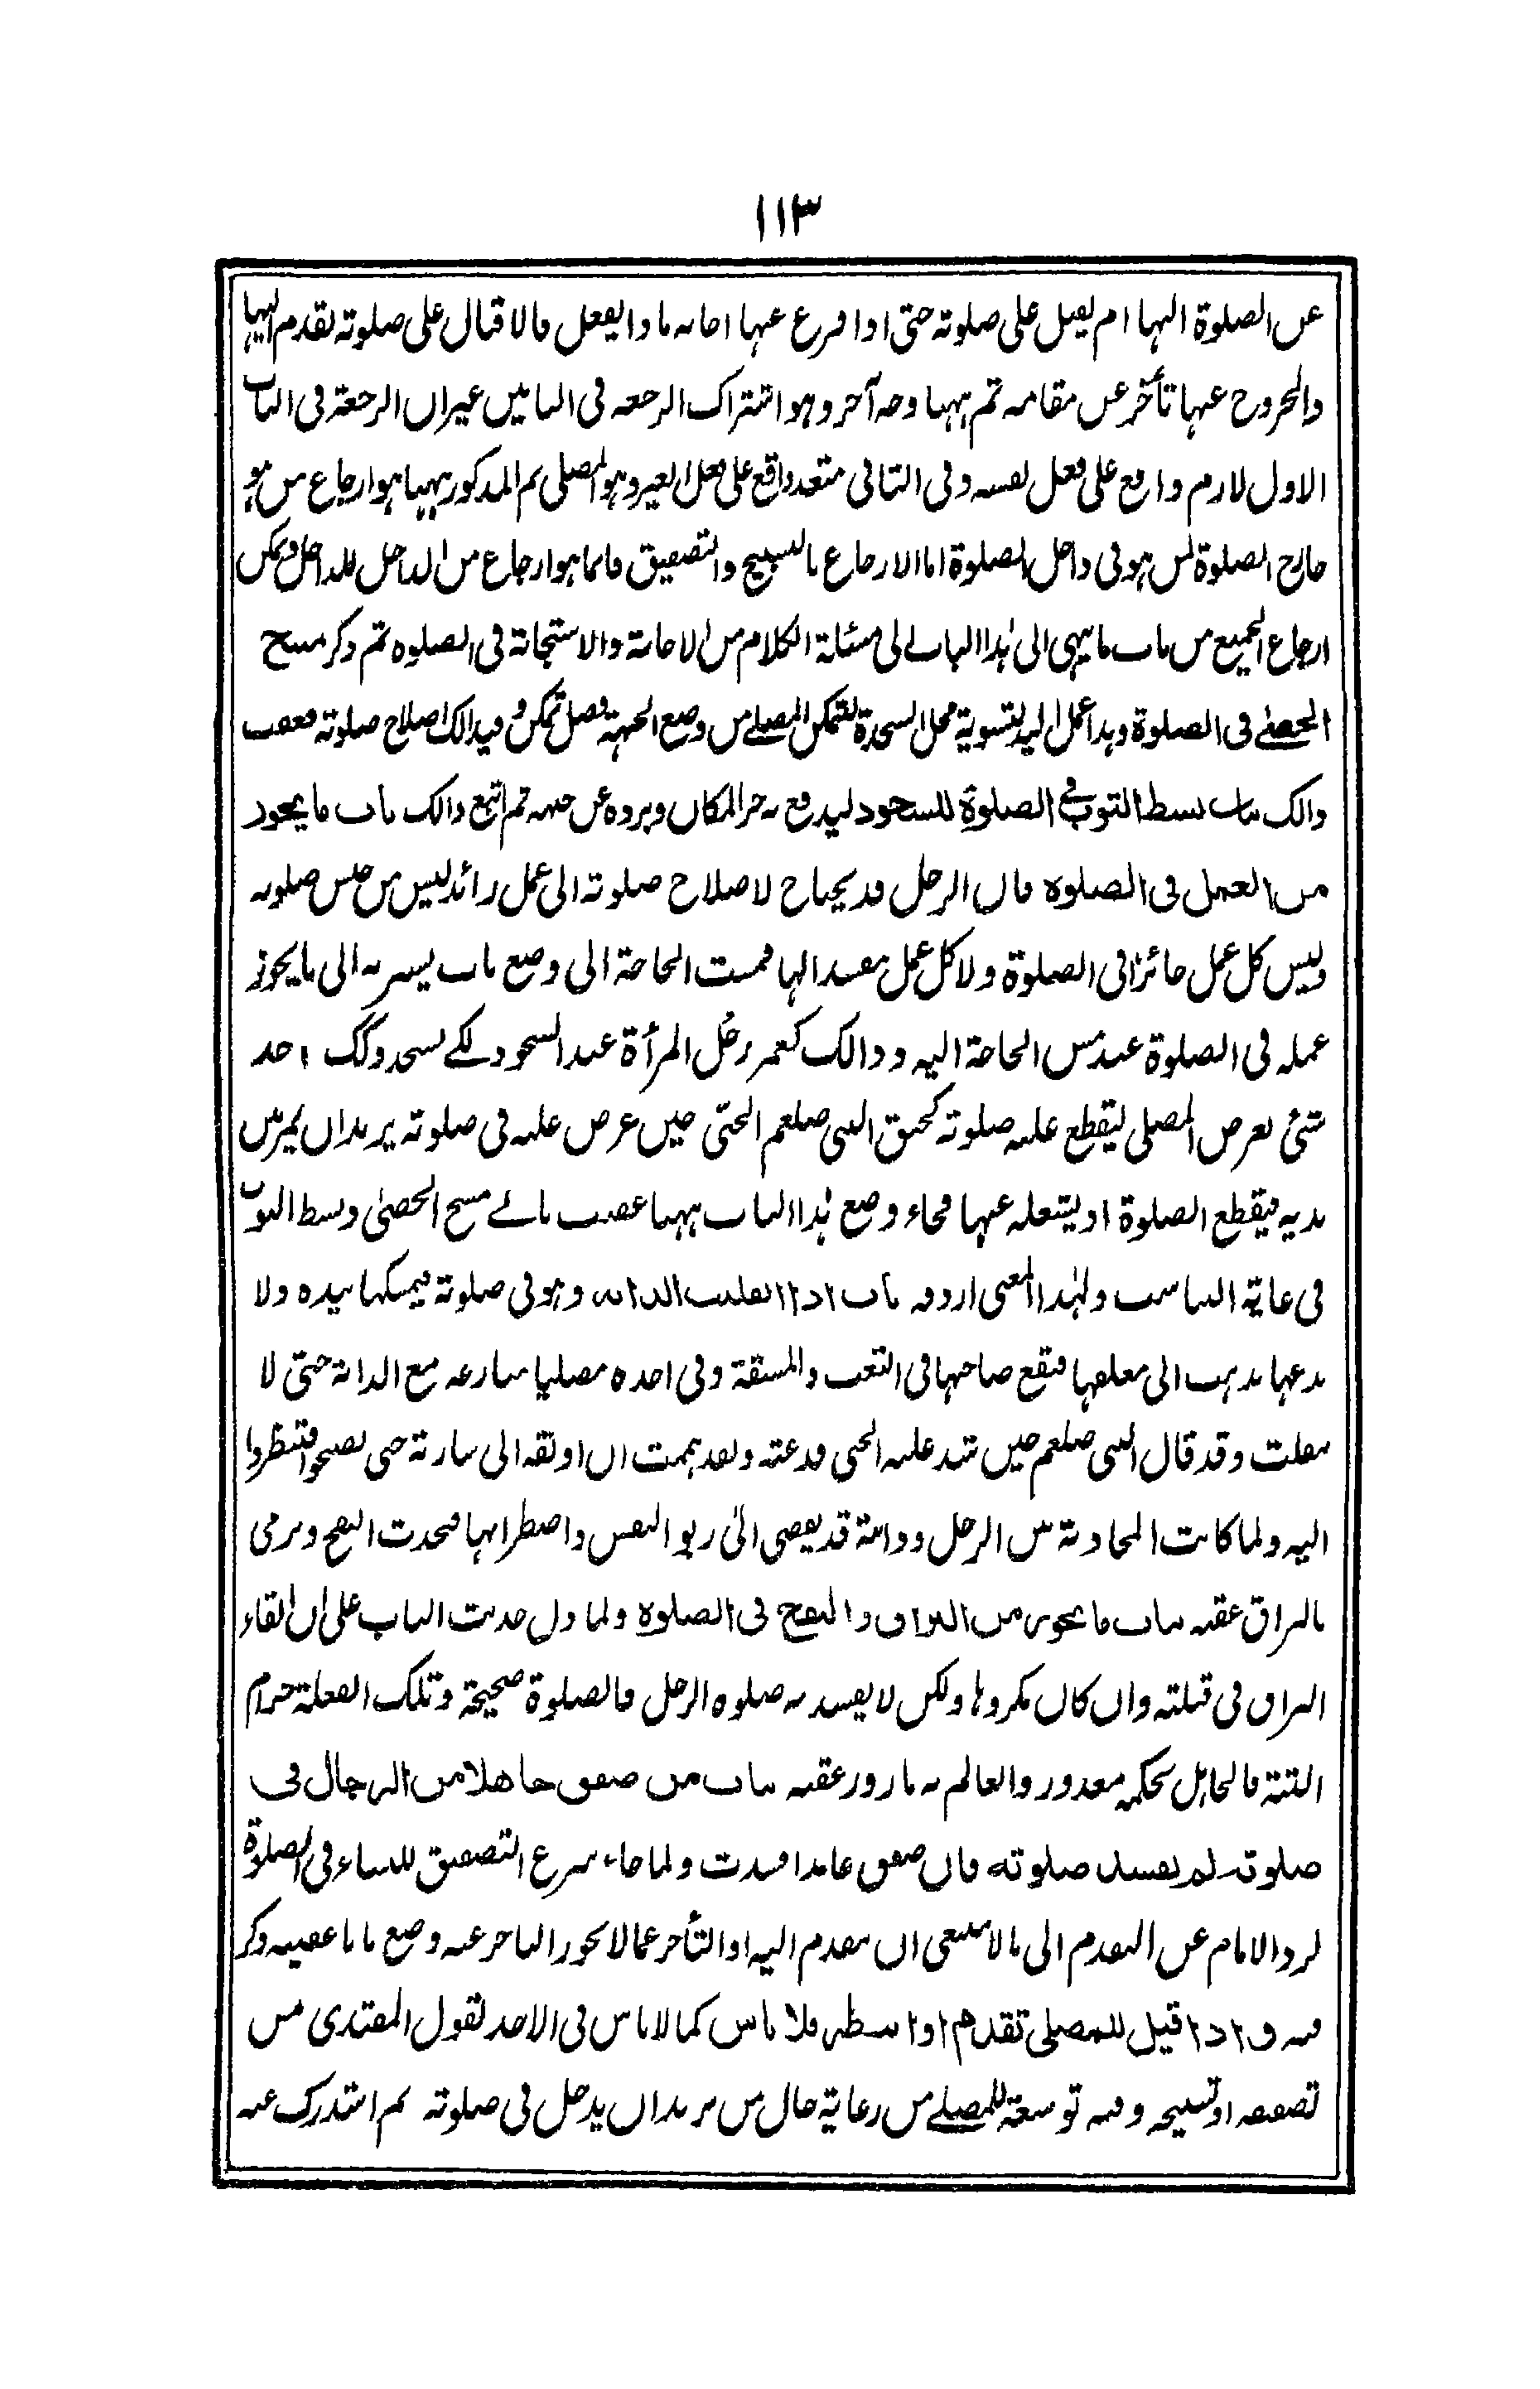 ١١٣
عن الصلوة اليها ام يقبل على صلوته حتى اذا فرغ عنها اجابه ماذا يفعل فالاقبال على صلوته تقدم اليها
والخروج عنها تأخر عن مقامه ثم ههنا وجه آخر وهو اشتراك الرجعة فى البابين غير ان الرجعة فى الباب
الاول لازم واقع على فعل نفسه وفى الثانى متعد واقع على فعل الغير وهو المصلى ثم المذكور ههنا هو ارجاع من هو
خارج الصلوة لمن هو فى داخل الصلوة اما الارجاع بالتسبيح والتصفيق فانما هو ارجاع من الداخل للداخل ويمكن
ارجاع الجميع من باب ما ينهى الى هذا الباب الى مسئلة الكلام من الاجابة والاستجابة فى الصلوة ثم ذكر مسح
الحصى فى الصلوة وهذا عمل اليد لتسوية محل السجدة لتمكن المصلى من وضع الجبهة فضل تمكن وفيه ذالك اصلاح صلوته فعقب
ذالك بباب بسط الثوب فى الصلوة للسجود ليدفع به حر المكان وبروده عن جبهته ثم اتبع ذالك باب ما يجوز
من العمل فى الصلوة فان الرجل قد يحتاج لاصلاح صلوته الى عمل زائد ليس من جنس صلوته
وليس كل عمل جائزا فى الصلوة ولا كل عمل مفسدا لها فمست الحاجة الى وضع باب يسير به الى ما يجوز
عمله فى الصلوة عند مس الحاجة اليه وذالك كغمز رجل المرأة عند السجود لكے يسجد وكك اخذ
شئ تعرض المصلى ليقطع عليه صلوته كخنق النبى صلعم الجنّى حين عرض عليه فى صلوته يريد ان يمر بين
يديه فيقطع الصلوة او ليشغله عنها فجاء وضع هذا الباب ههنا عقب بابے مسح الحصى وبسط الثوب
فى غاية التناسب ولهذا المعنى اردفه باب اذا انفلتت الدابة وهو فى صلوته فيمسكها بيده ولا
يدعها يذهب الى معلفها فتقع صاحبها فى التعب والمشقة وفى اخذه مصليا منازعة مع الدابة حتى لا
تنفلت وقد قال النبى صلعم حين شد عليه الجنى فدعته ولقد هممت ان اوثقه الى سارية حتى تصبحوا فتنظروا
اليه ولما كانت المجاذبة بين الرجل ودابته قد يفضى الى ربو النفس واضطرابها فيحدث النفخ ويرمى
بالبزاق عقبه بباب ما يجوز من البزاق والنفخ فى الصلوة ولما دل حديث الباب على ان القاء
البزاق فى قبلته وان كان مكروها ولكن لا يفسد به صلوة الرجل فالصلوة صحيحة وتلك الفعلة حرام
البتة فالجاهل بحكمه معذور والعالم به مازور عقبه بباب من صفق جاهلا من الرجال فى
صلوته لم يفسد صلوته فان صفق عامدا فسدت ولما جاء شرع التصفيق للنساء فى الصلوة
لرد الامام عن التقدم الى ما لا ينبغى ان يتقدم اليه او التأخر عما لا يجوز التاخر عنه وضع بابا عقيبه وذكر
فيه ف اذا قيل للمصلى تقدم او انتظر فلا باس كما لا باس فى الاخذ لقول المقتدى من
تصفيقه او تسبيحه وفيه توسعة للمصلے من رعاية حال من يريد ان يدخل فى صلوته ثم استدرك عنه